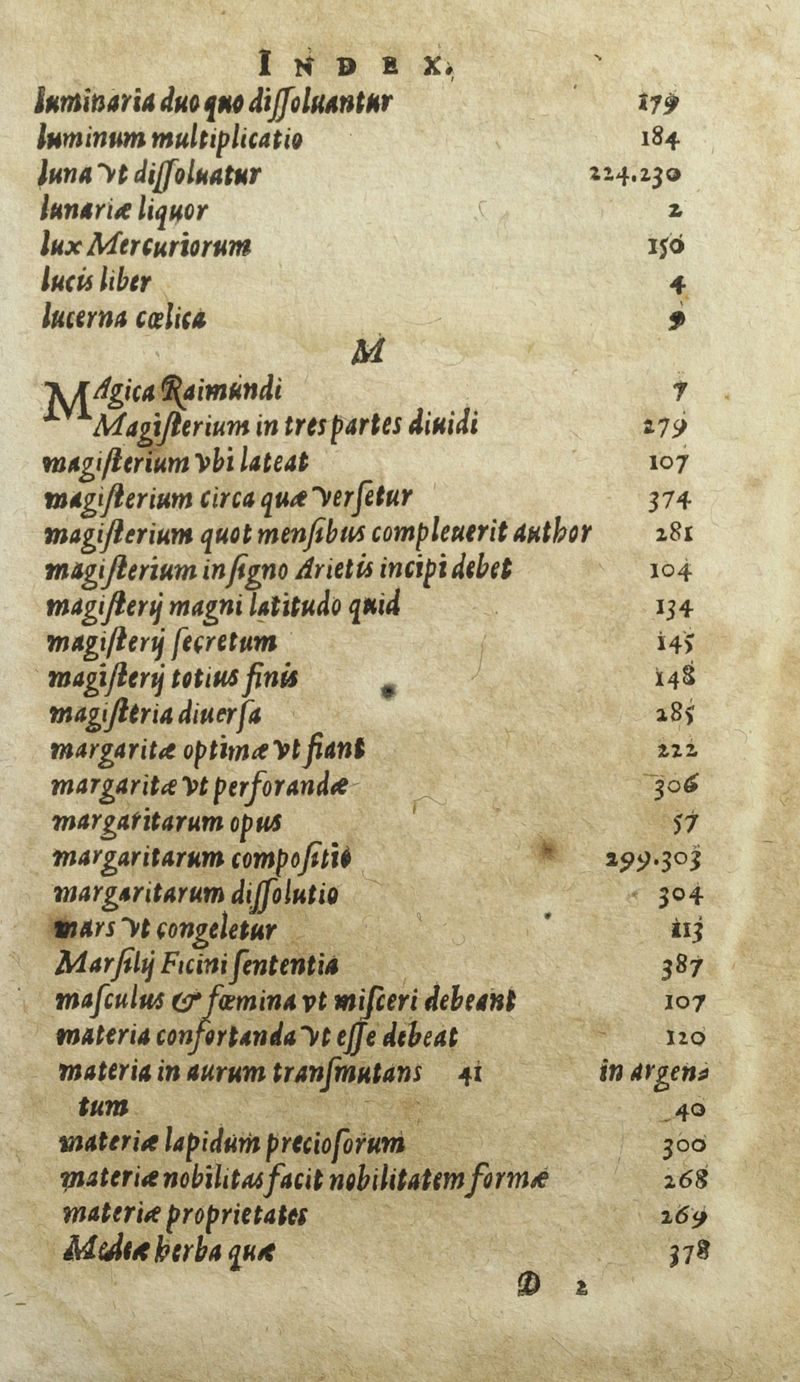 INDEX.
luminaria duo quo diſſoluantur 179
luminum multiplicatio 184
luna vt diſſoluatur 224.230
lunariæ liquor 2
lux Mercuriorum 150
lucis liber 4
lucerna cœlica 9
M
MAgica Raimundi 7
Magiſterium in tres partes diuidi 279
magiſterium vbi lateat 107
magiſterium circa quæ verſetur 374
magiſterium quot menſibus compleuerit author 281
magiſterium in ſigno Arietis incipi debet 104
magiſterij magni latitudo quid 134
magiſterij ſecretum 145
magiſterij totius finis 148
magiſteria diuerſa 285
margaritæ optimæ vt fiant 222
margaritæ vt perforandæ 306
margaritarum opus 57
margaritarum compoſitio 299.303
margaritarum diſſolutio 304
mars vt congeletur 113
Marſilij Ficini ſententia 387
maſculus & fœmina vt miſceri debeant 107
materia confortanda vt eſſe debeat 120
materia in aurum tranſmutans 41 in argen-
tum 40
materiæ lapidum precioſorum 300
materiæ nobilitas facit nobilitatem formæ 268
materiæ proprietates 269
Medeæ herba quæ 378
D 2